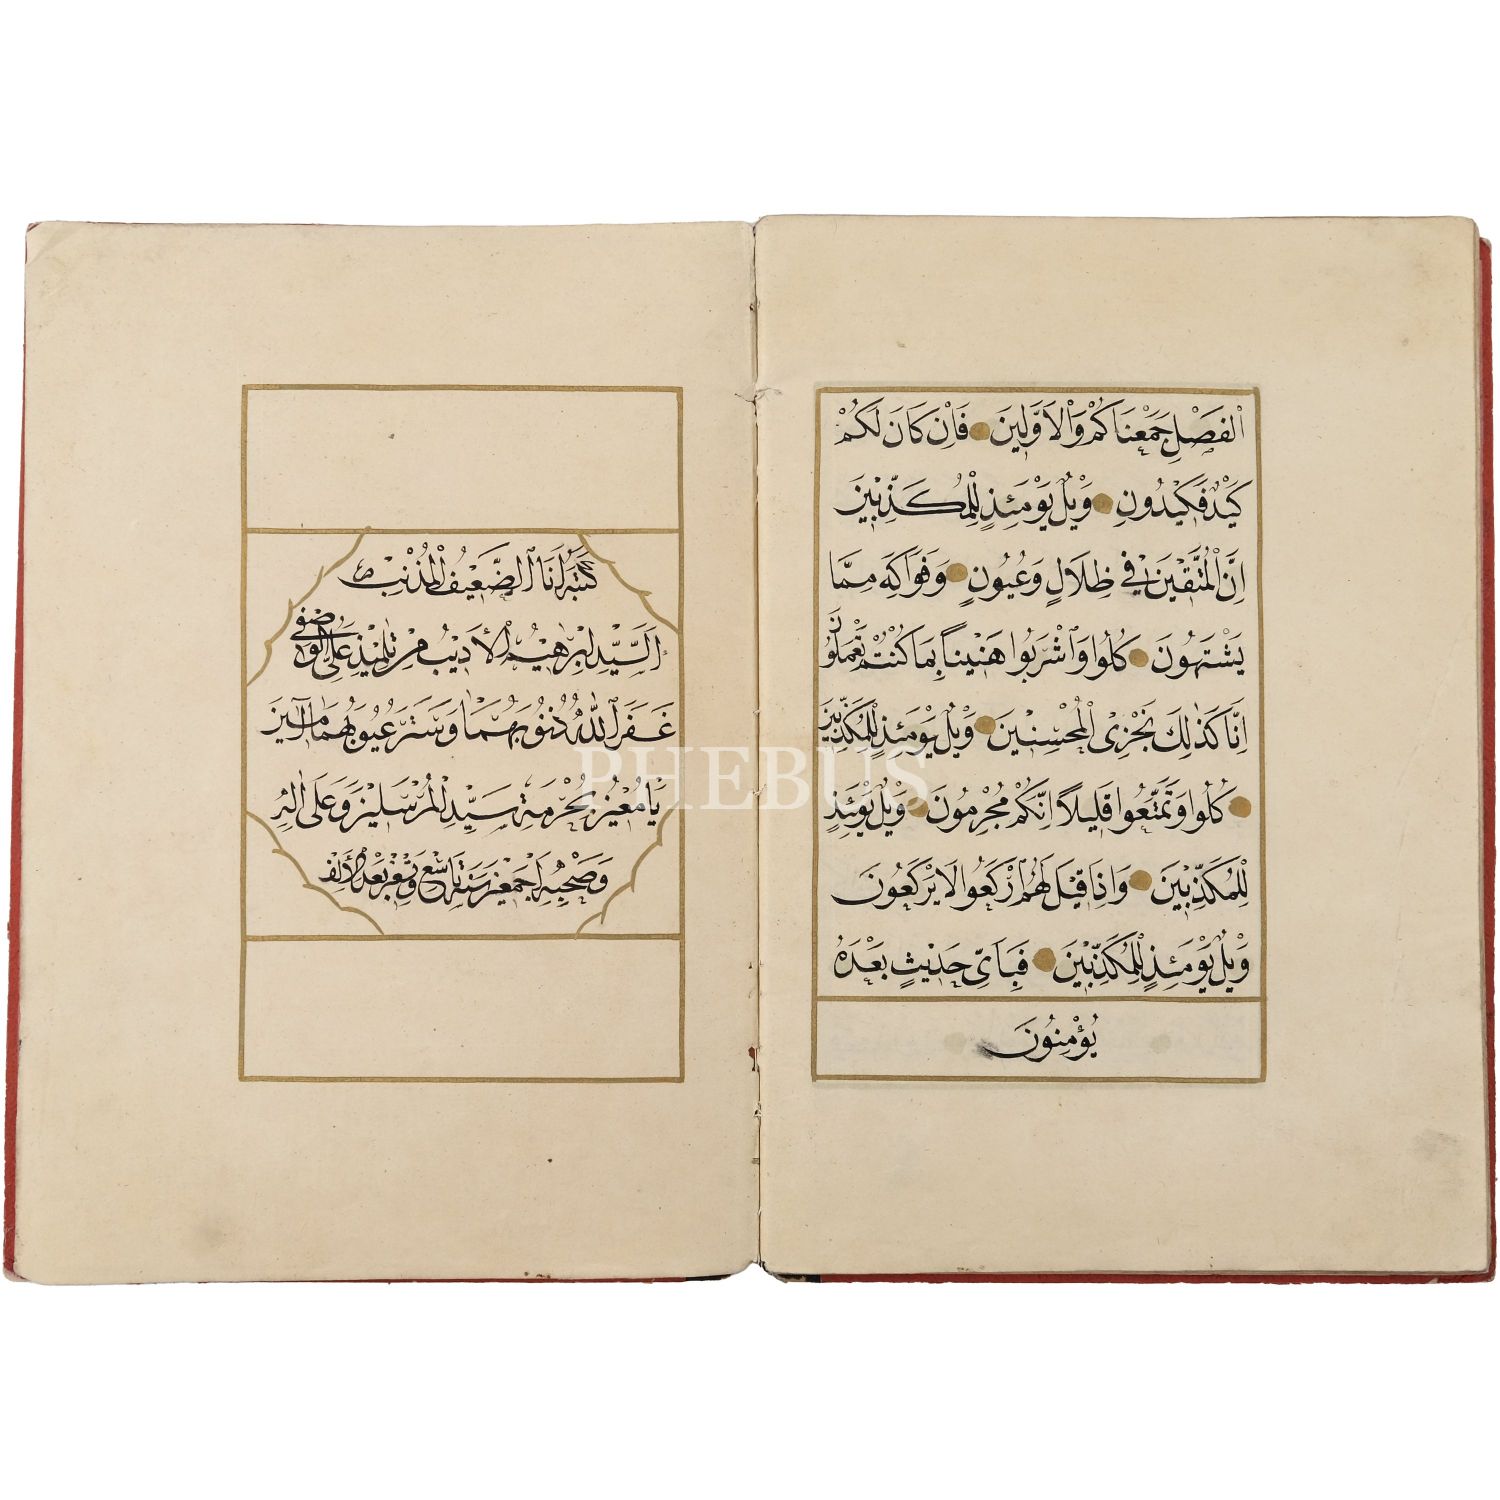 الْفَصْلِ جَمَعْنَاكُمْ وَالْاَوَّلِينَ فَاِنْ كَانَ لَكُمْ
كَيْدٌ فَكِيْدُونِ وَيْلٌ يَوْمَئِذٍ لِلْمُكَذِّبِينَ
اِنَّ الْمُتَّقِينَ فِي ظِلَالٍ وَعُيُونٍ وَفَوَاكِهَ مِمَّا
يَشْتَهُونَ كُلُوا وَاشْرَبُوا هَنِيئاً بِمَا كُنْتُمْ تَعْمَلُونَ
اِنَّا كَذٰلِكَ نَجْزِي الْمُحْسِنِينَ وَيْلٌ يَوْمَئِذٍ لِلْمُكَذِّبِينَ
كُلُوا وَتَمَتَّعُوا قَلِيلاً اِنَّكُمْ مُجْرِمُونَ وَيْلٌ يَوْمَئِذٍ
لِلْمُكَذِّبِينَ وَاِذَا قِيلَ لَهُمُ ارْكَعُوا لَا يَرْكَعُونَ
وَيْلٌ يَوْمَئِذٍ لِلْمُكَذِّبِينَ فَبِاَيِّ حَدِيثٍ بَعْدَهُ
يُؤْمِنُونَ
كتبه انا الضَّعِيفُ الْمُذْنِبُ
اَلسَّيِّد اِبْرٰهِيمُ الْأَدِيبُ مِنْ تَلَامِيذِ عَلِى الْوَصْفِى
غَفَرَ اللّٰهُ ذُنُوبَهُمَا وَسَتَرَ عُيُوبَهُمَا آمِينَ
يَا مُعِينُ بِحُرْمَةِ سَيِّدِ الْمُرْسَلِينَ وَعَلَى اٰلِهِ
وَصَحْبِهِ اَجْمَعِينَ سَنَة تاسع وَتسعين بَعْدَ الْأَلْف
PHEBUS